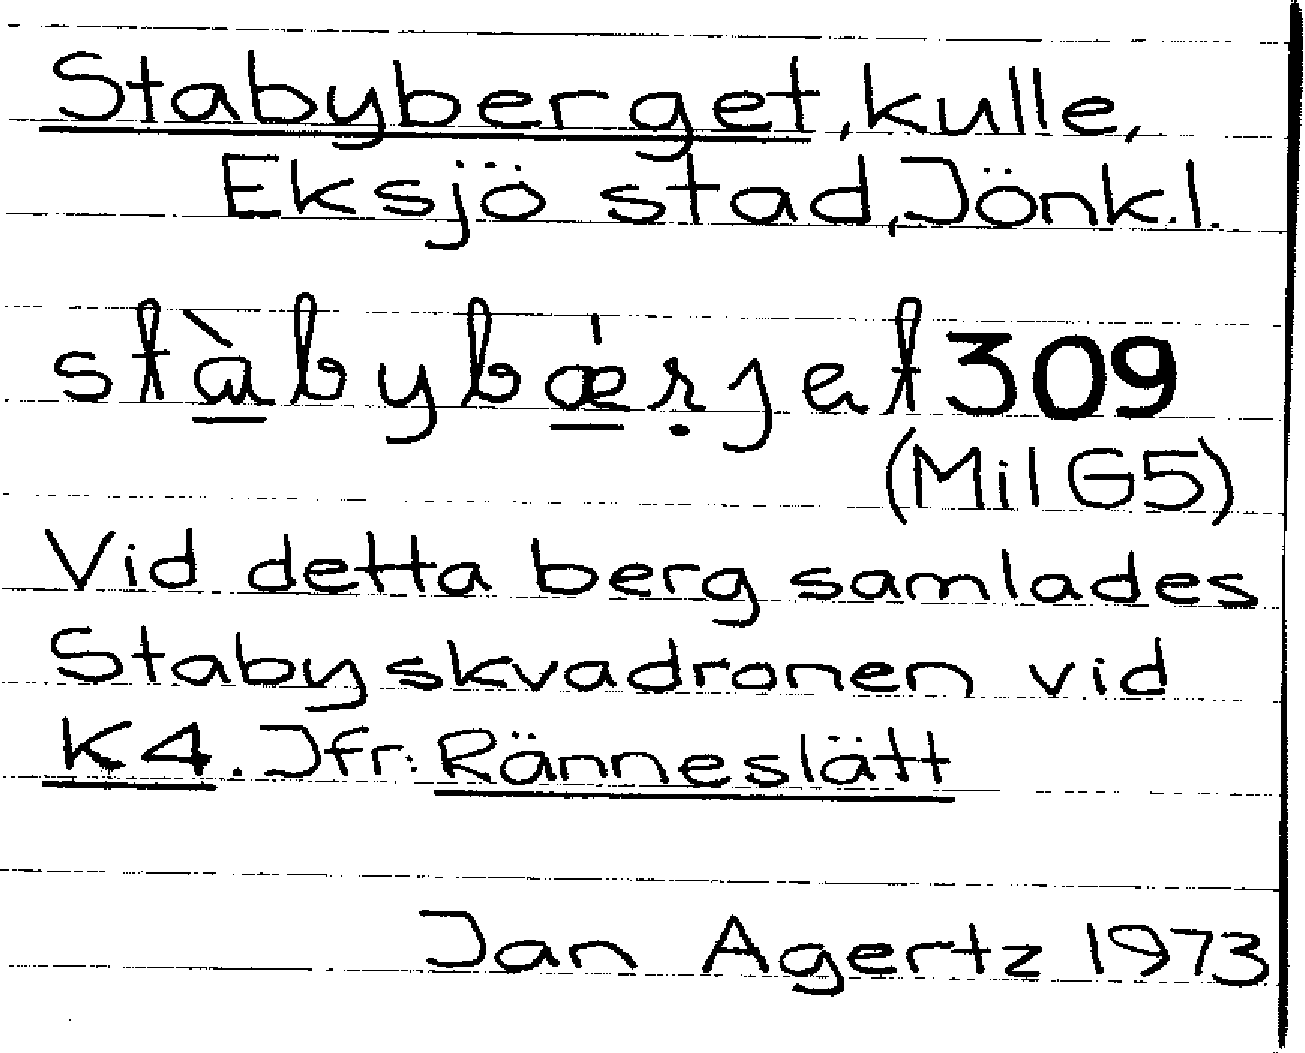 Stabyberget, kulle,
Eksjö stad, Jönk.l.
stàbybǽṛjet 309
(Mil G5)
Vid detta berg samlades
Stabyskvadronen vid
K4. Jfr: Ränneslätt
Jan Agertz 1973